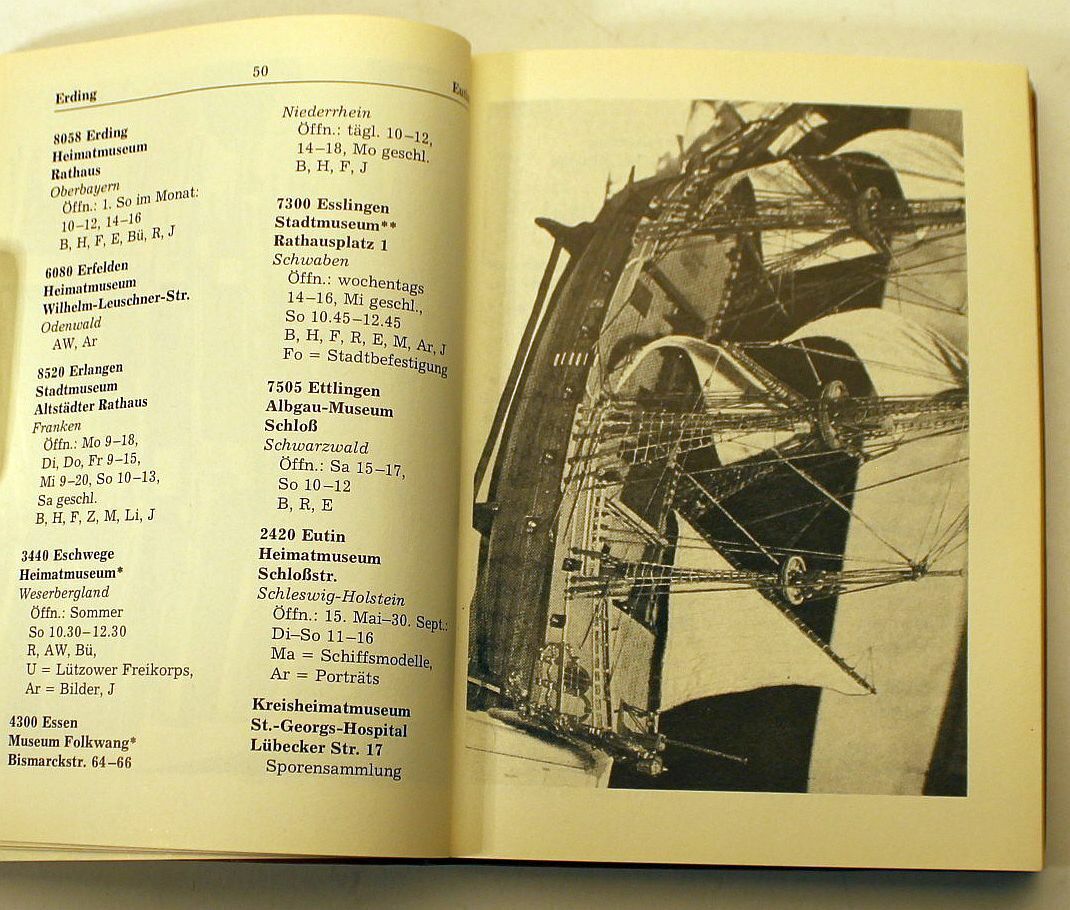 50
Erding
8058 Erding
Heimatmuseum
Rathaus
Oberbayern
Öffn.: 1. So im Monat:
10–12, 14–16
B, H, F, E, Bü, R, J
6080 Erfelden
Heimatmuseum
Wilhelm-Leuschner-Str.
Odenwald
AW, Ar
8520 Erlangen
Stadtmuseum
Altstädter Rathaus
Franken
Öffn.: Mo 9–18,
Di, Do, Fr 9–15,
Mi 9–20, So 10–13,
Sa geschl.
B, H, F, Z, M, Li, J
3440 Eschwege
Heimatmuseum*
Weserbergland
Öffn.: Sommer
So 10.30–12.30
R, AW, Bü,
U = Lützower Freikorps,
Ar = Bilder, J
4300 Essen
Museum Folkwang*
Bismarckstr. 64–66
Niederrhein
Öffn.: tägl. 10–12,
14–18, Mo geschl.
B, H, F, J
7300 Esslingen
Stadtmuseum**
Rathausplatz 1
Schwaben
Öffn.: wochentags
14–16, Mi geschl.,
So 10.45–12.45
B, H, F, R, E, M, Ar, J
Fo = Stadtbefestigung
7505 Ettlingen
Albgau-Museum
Schloß
Schwarzwald
Öffn.: Sa 15–17,
So 10–12
B, R, E
2420 Eutin
Heimatmuseum
Schloßstr.
Schleswig-Holstein
Öffn.: 15. Mai–30. Sept.:
Di–So 11–16
Ma = Schiffsmodelle,
Ar = Porträts
Kreisheimatmuseum
St.-Georgs-Hospital
Lübecker Str. 17
Sporensammlung